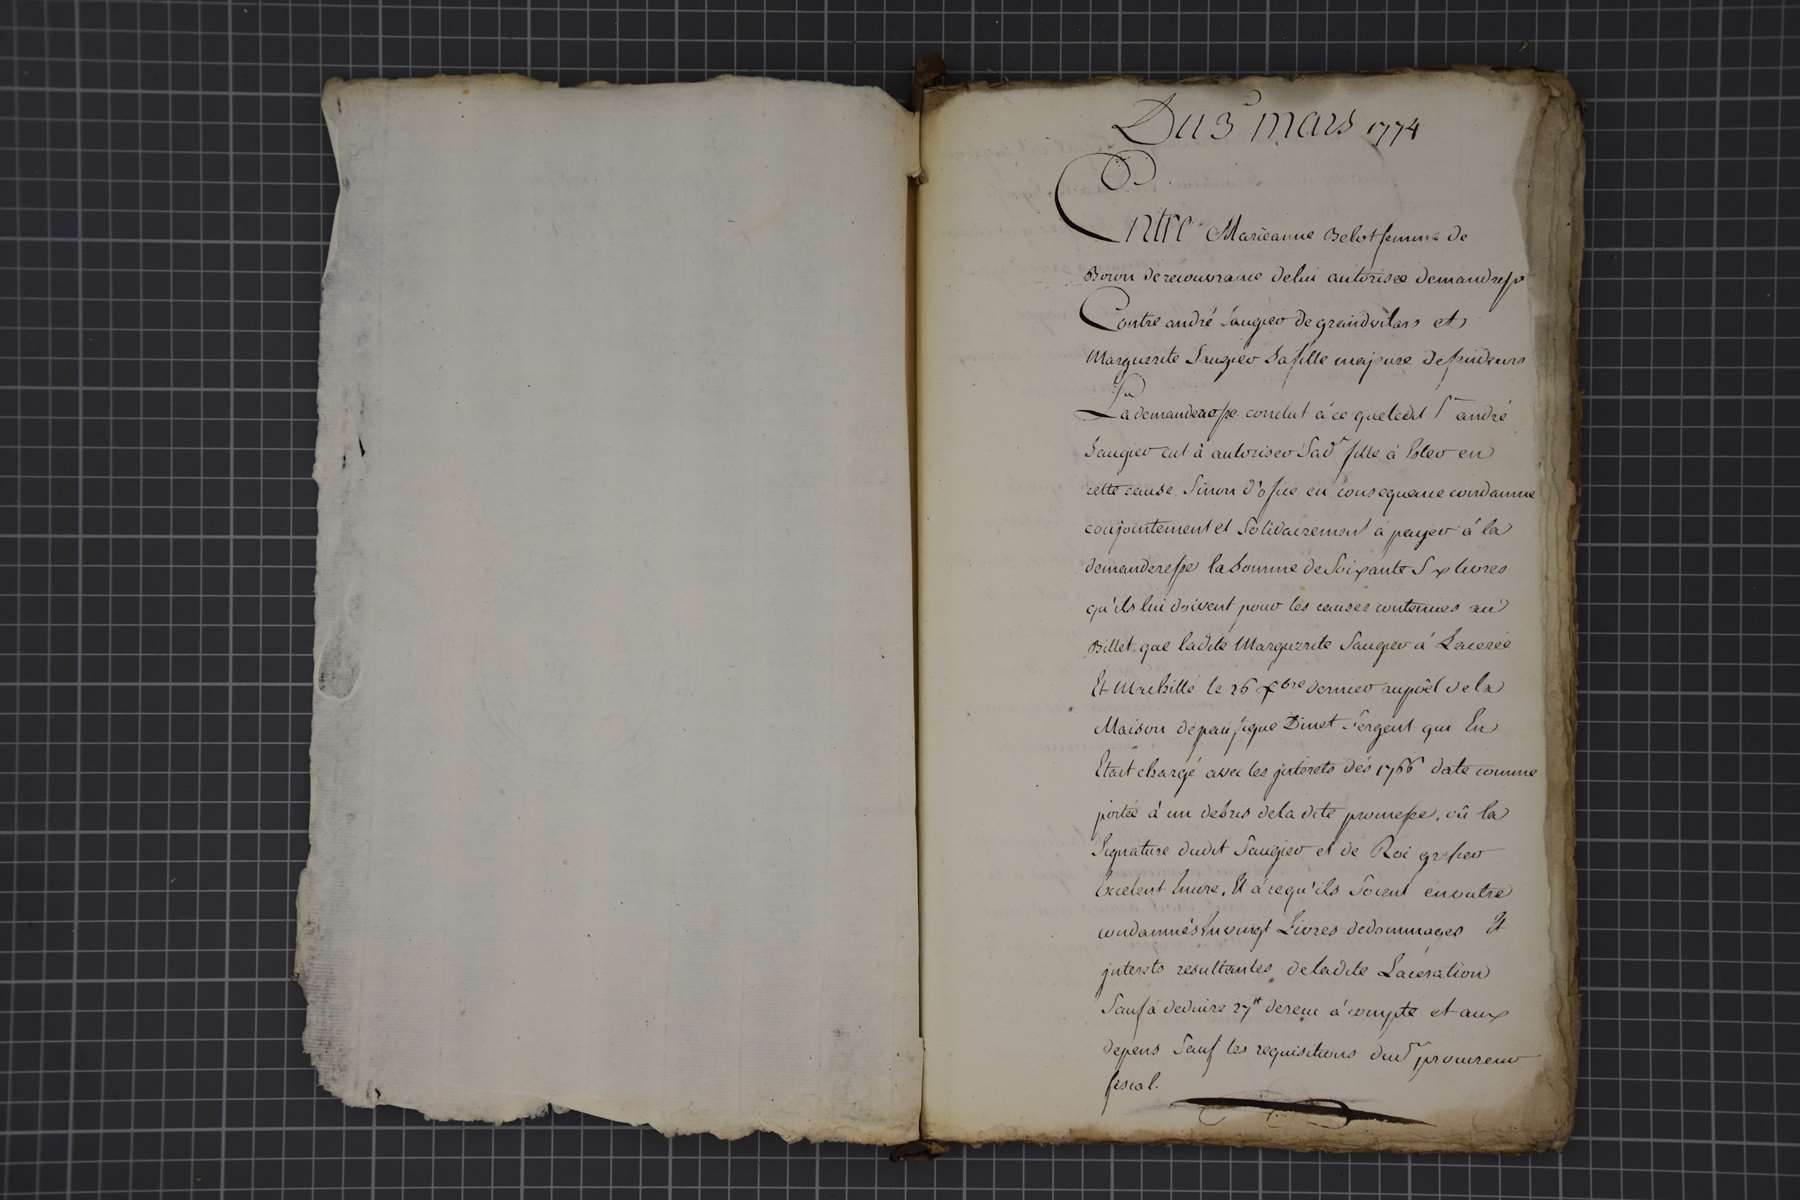 Du 3 mars 1774
Entre Marieanne Belot femme de
Boron de recouvrance de lui autorisée demandresse
Contre andré Saugier de grandvilars et
Marguerite Saugier Sa fille majeure defendeurs
La demanderesse conclut à ce que ledit Sr andré
Saugier ait à autoriser Sad. fille à Ester en
cette cause Sinon d'office en consequence condamné
conjointement et Solidairement à payer à la
demanderesse la Somme de Soixante Six livres
qu'ils lui doivent pour les causes contenues au
Billet que ladite Marguerite Saugier à Laceré
Et le 26 Xbre dernier au poêl de la
Maison de Dinet Sergent qui En
Etait chargé avec les jnterets dès 1766 date comme
portée à un debris de la dite promesse, où la
Signature dudit Saugier et de Roi grefier
Excelent Encore, Et à ce qu'ils Soient en outre
condamnés En vingt Livres de dommages Et
jnterets resultantes de ladite Laceration
Sauf à deduire 27tt de recu à compte et aux
depens Sauf les requisitions du Sr procureur
fiscal.